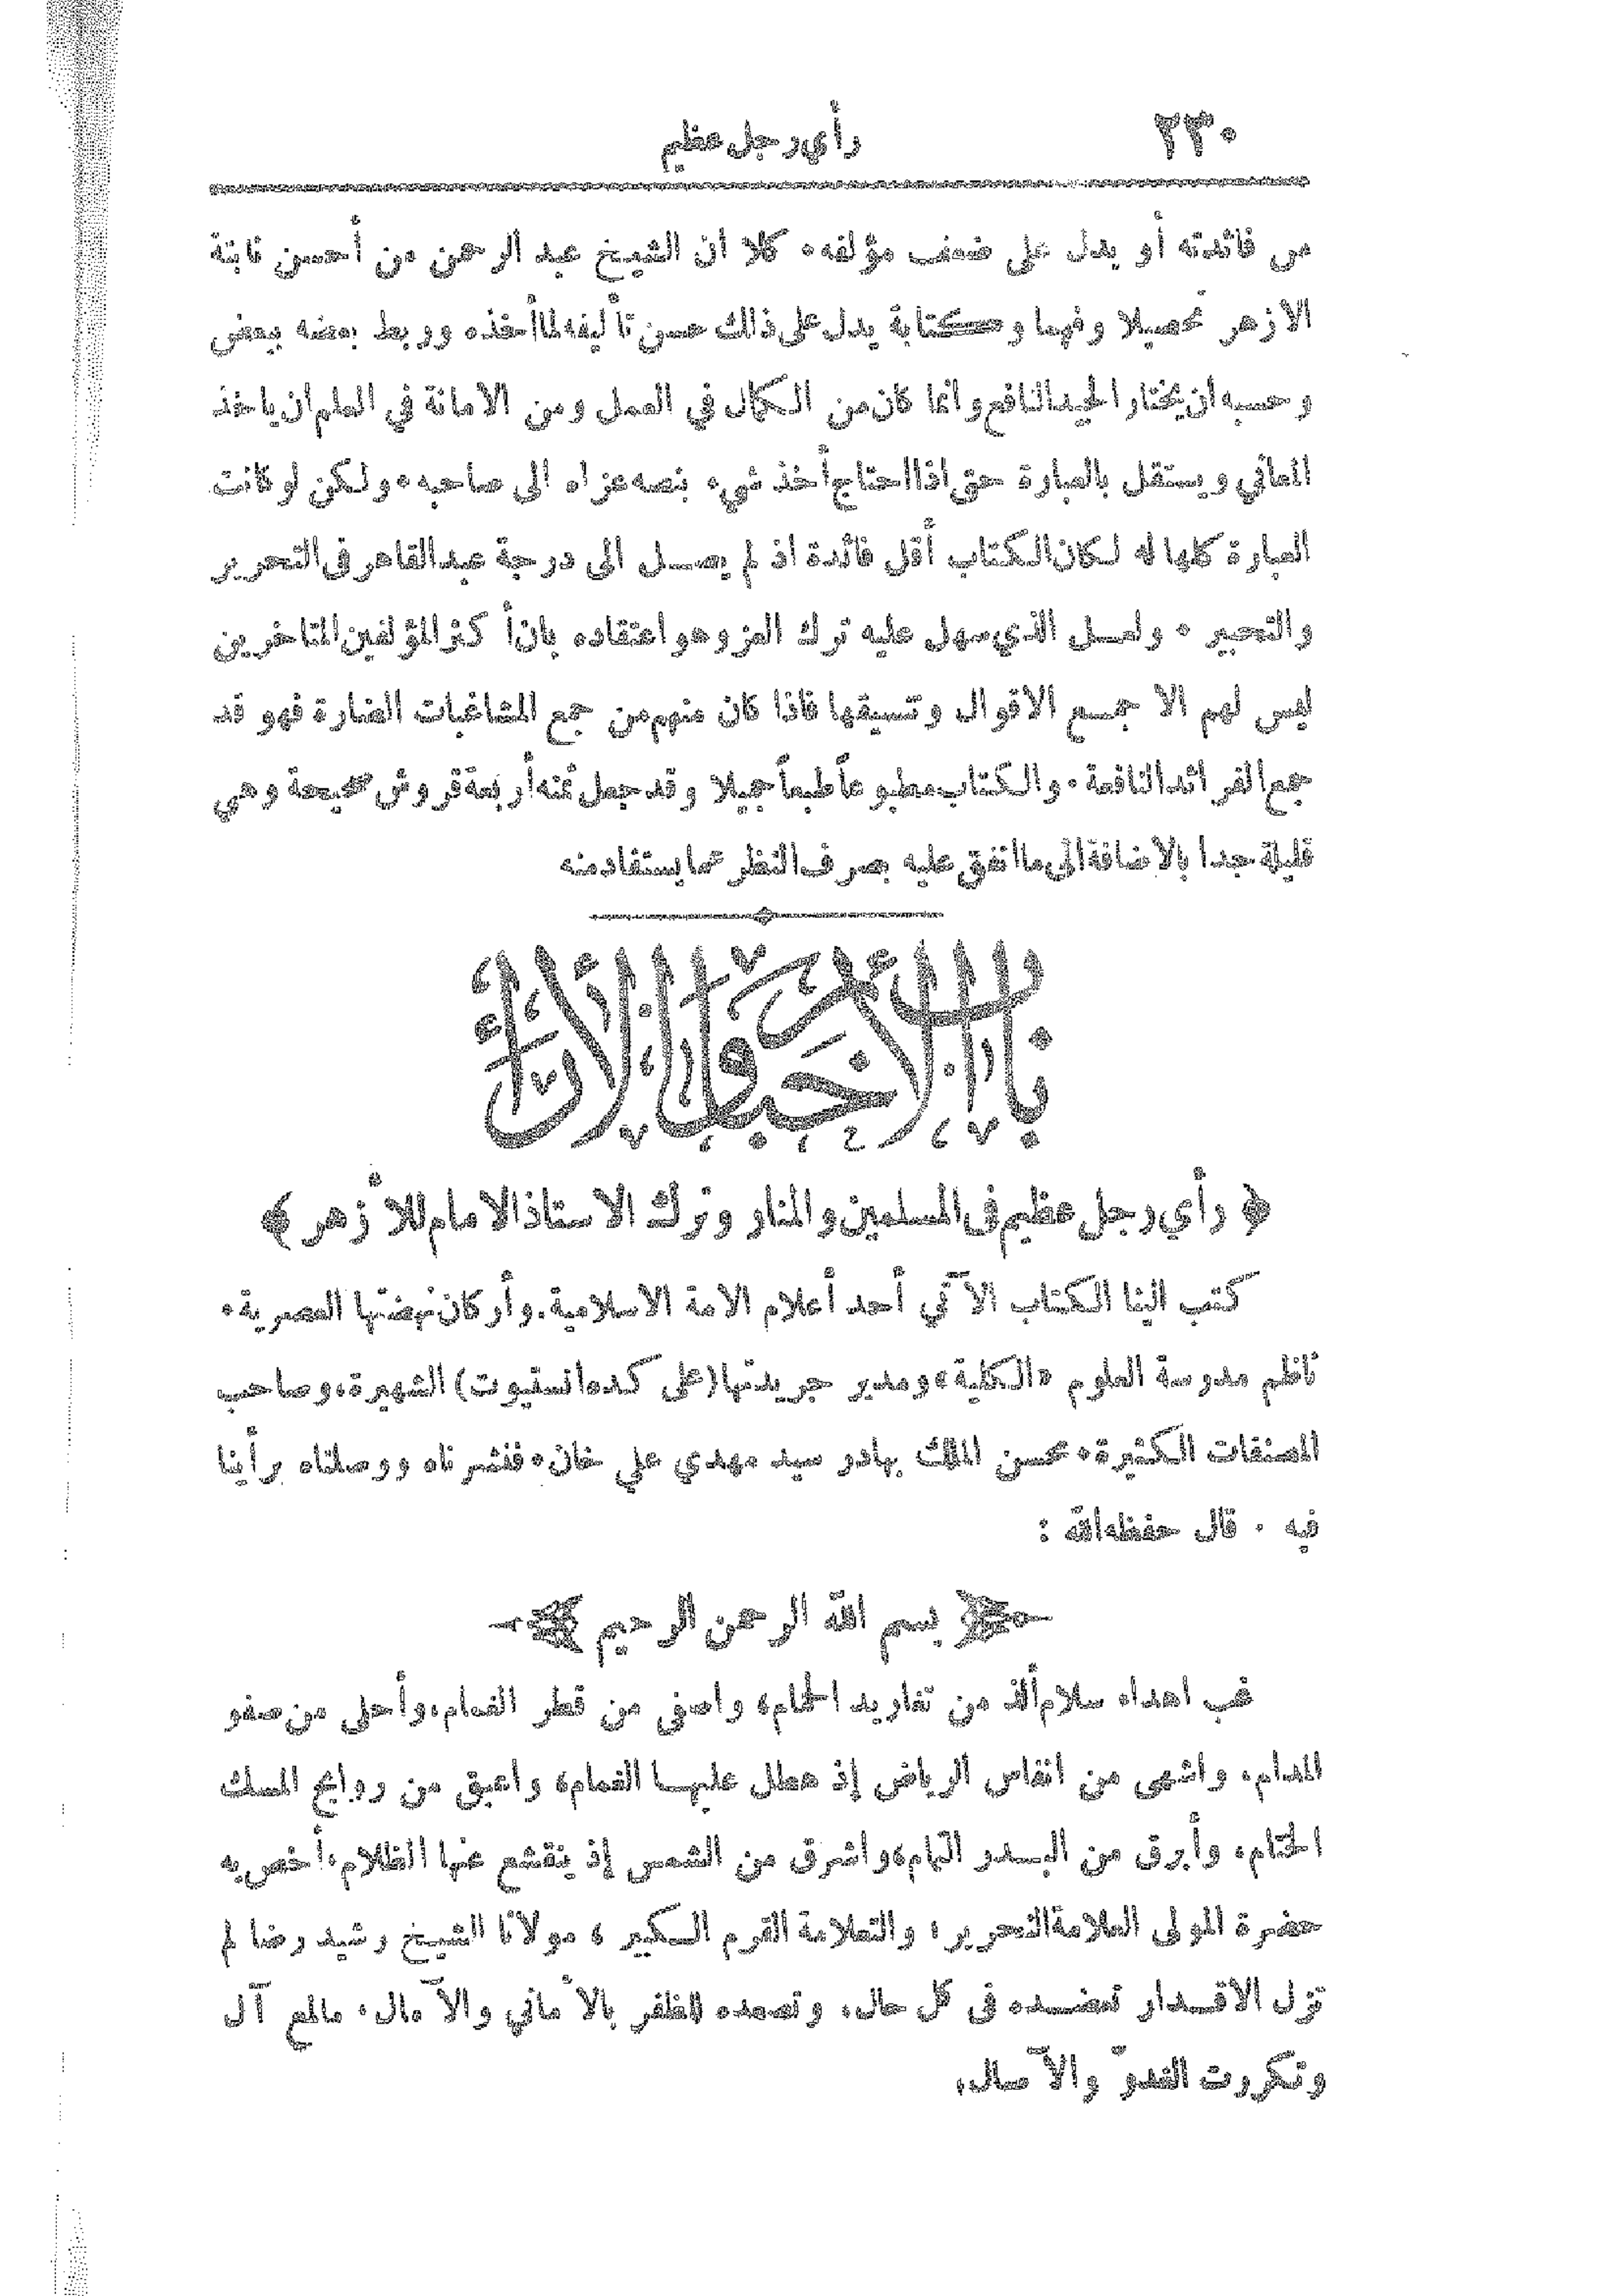 ٢٣٠
رأي رجل عظيم
من فائدته أو يدل على ضعف مؤلفه • كلا ان الشيخ عبد الرحمن من أحسن نابتة
الازهر تحصيلا وفهما وكتابة يدل على ذلك حسن تأليفه لما أخذه وربط بعضه ببعض
وحسبه ان يختار الجيد النافع وانما كان من الكمال في العمل ومن الامانة في العلم ان ياخذ
المعاني ويستقل بالعبارة حتى اذا احتاج أخذ شيء بنصه عزاه الى صاحبه • ولكن لو كانت
العبارة كلها له لكان الكتاب أقل فائدة اذ لم يصل الى درجة عبد القاهر في التحرير
والتحبير • ولعل الذي سهل عليه ترك العزو هو اعتقاده بان أكثر المؤلفين المتاخرين
ليس لهم الا جمع الاقوال وتنسيقها فاذا كان منهم من جمع المشاغبات الضارة فهو قد
جمع الفرائد النافعة • والكتاب مطبوعاً طبعاً جميلا وقد جعل ثمنه أربعة قروش صحيحة وهي
قليلة جدا بالاضافة الى ما اتفق عليه بصرف النظر عما يستفاد منه
باب الاخبار والآراء
﴿ رأي رجل عظيم في المسلمين والمنار وترك الاستاذ الامام للأزهر ﴾
كتب الينا الكتاب الآتي أحد أعلام الامة الاسلامية. وأركان نهضتها العصرية •
ناظم مدرسة العلوم «الكلية» ومدير جريدتها (على كده انستيوت) الشهيرة، وصاحب
المصنفات الكثيرة • محسن الملك بهادر سيد مهدي علي خان • فنشرناه ووصلناه برأينا
فيه • قال حفظه الله :
بسم الله الرحمن الرحيم
غب اهداء سلام ألذ من تغاريد الحمام، واصفى من قطر الغمام، وأحلى من صفو
المدام، واشهى من انفاس الرياض إذ هطل عليها الغمام، واعبق من روايح المسك
الختام، وأبرق من البدر التمام، واشرق من الشمس إذ ينقشع عنها الظلام، أخص به
حضرة المولى العلامة النحرير، والتعلامة القرم الكبير، مولانا الشيخ رشيد رضا لم
تزل الاقدار تعضده في كل حال، وتصعده للظفر بالأماني والآمال، مالمع آل
وتكررت الغدوّ والآصال،